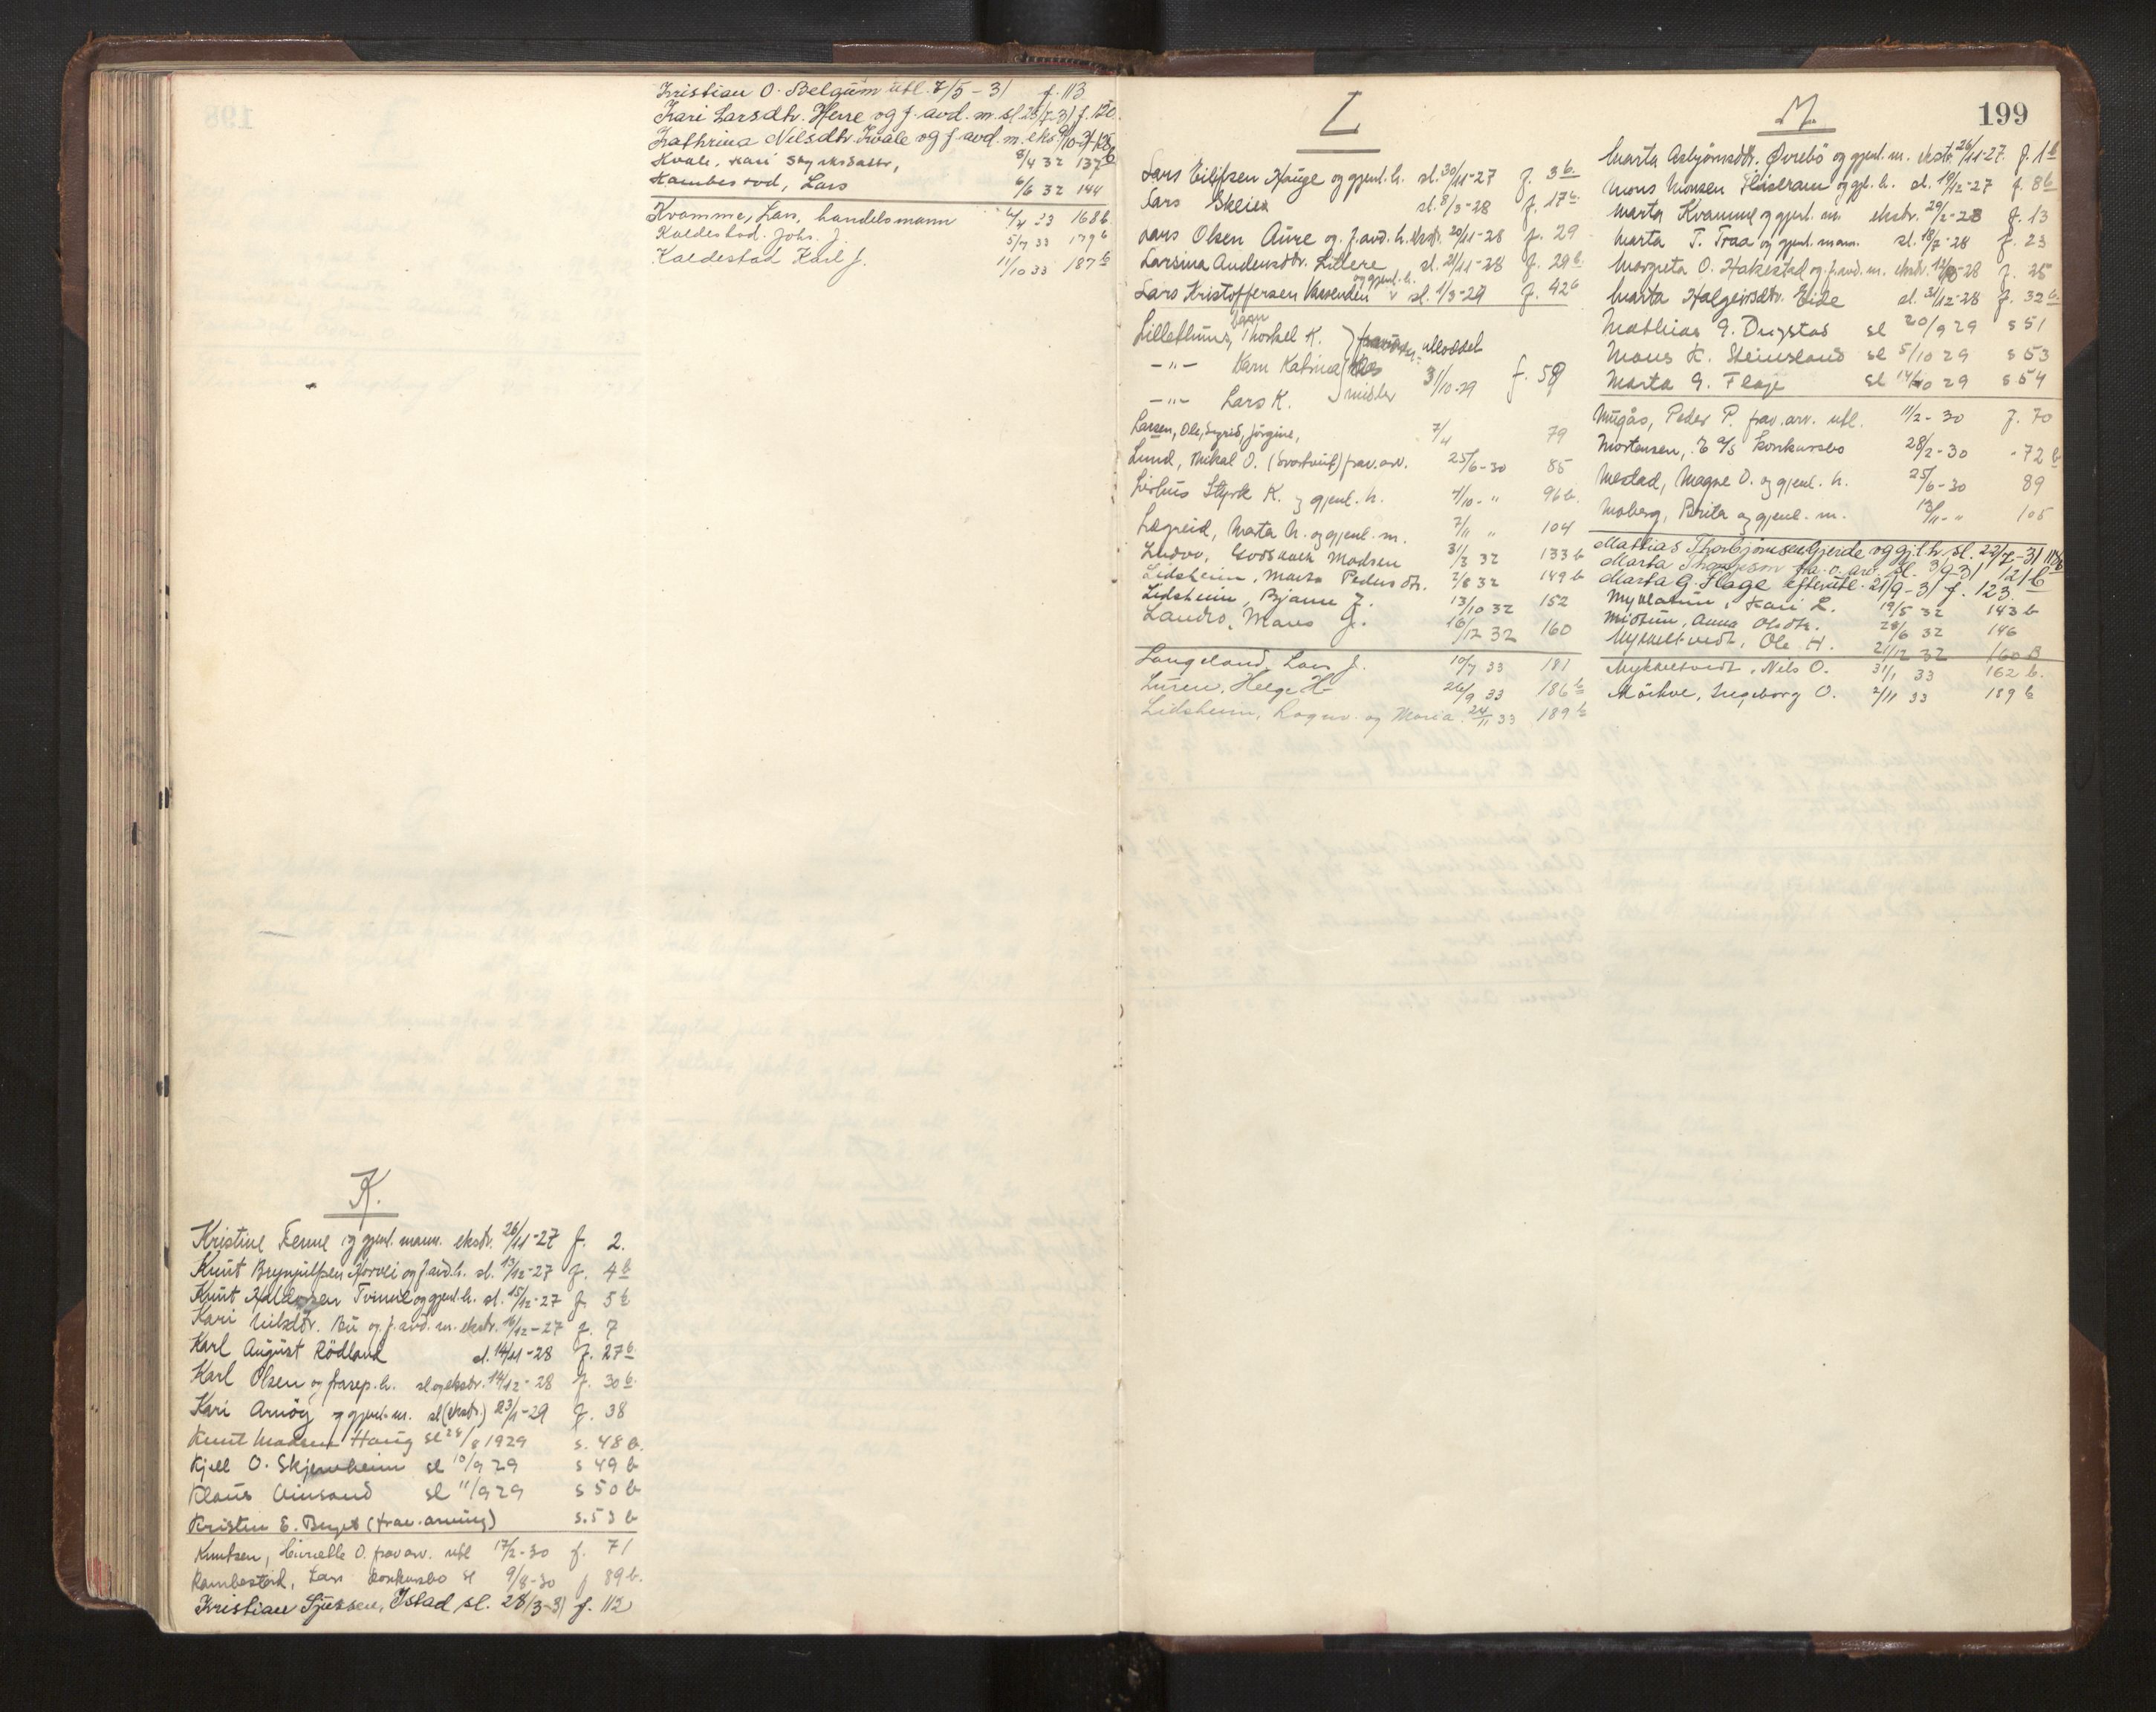 K.
Kristine Fenne og gjenl. mann. ekstr. 26/11-27 f. 2.
Knut Brynjulfsen Norvei og f. avd. h. sl. 13/12-27 f. 4b
Knut Haldorsen Tvinne og gjenl. h. sl. 15/12-27 f. 5b
Kari Nilsdtr. Bu og f. avd. m. ekstr. 16/12-27 f. 7
Karl August Rödland sl. 14/11-28 f. 27b
Karl Olsen og frasep. h. sl og ekstr. 14/12-28 f. 30b
Kari Arnöy og gjenl. m. sl (ekstr.) 23/1-29 f. 38
Knut Madsen Haug sl 28/8 1929 s. 48 b.
Kjell O. Skjerveheim sl 10/9 29 s 49 b
Klaus Vinsand sl 11/9 29 s 50 b
Kristen E. Berget (frav. arving) s. 53 b
Knutsen, O. frav arv. utl 17/2-30 f. 71
Kambestad, Lars konkursbo sl 9/8-30 f 89 b.
Kristian Sjursen, Istad sl. 28/3-31 f. 112
Kristian O. Belgum utl. 7/5-31 f. 113
Kari Larsdtr. Herre og f. avd. m. sl 23/7-31 f. 120.
Kathrina Nilsdtr. Kvale og f. avd. m. eks. 9/10-31 f. 125b
Kvale, Kari 8/4 32 137b
Kambestad, Lars 6/6 32 144
Kvamme, Lars, handelsmann 4/4 33 168 b
Kaldestad. Johs. J. 5/7 33 179b
Kaldestad Karl J. 11/10 33 187b
L
Lars Eilifsen Hauge og gjenl. h. sl. 30/11-27 f. 3b
Lars Skeie sl. 8/3-28 f. 17b
Lars Olsen Aure og f. avd. h. ekstr. 20/11-28 f. 29
Larsina Andersdtr. Littere sl. 21/11-28 f. 29b
Lars Kristoffersen Vassenden og gjenl. h. sl. 1/3-29 f. 42b
Lillethuns, barn Thorkel K.
-"- Karn Katrina utloddet
-"- Lars K. midler 31/10-29 f. 59
Larsen, Ole, Sigrid, Jörgine, 7/4 79
Lund, Mikal O. frav. arv. 25/6-30 85
Styrk K. og gjenl. h. 4/10-" 96 b.
Lægreid, Marta N. og gjenl. m. 7/11 " 104
Godskalk Madsen 31/3 32 133 b
Lidsheim, Marta Pedersdtr. 2/8 32 149 b
Lidsheim, Bjarne J. 13/10 32 152
Landro, Mons J. 16/12 32 160
Langeland, Lars J. 10/7 33 181
Luren, Helge H 26/9 33 186b
Lidsheim, Ragnv. og Maria 24/11 33 189b
M. 199
Marta Asbjörnsdtr. Övrebö og gjenl. m. ekstr. 26/11-27. f. 1b
Mons Monsen Flåteram og gjl. h. sl. 19/12-27 f. 8b
Marta Kvamme og gjenl. m. ekstr. 29/2-28 f. 13
Marta T. Traa og gjenl. mann. sl. 18/7-28 f. 23
Margreta O. Hakestad og f. avd. m. ekstr. 12/10-28 f. 25
Marta Holgeirsdtr. Eide sl. 31/12-28 f. 32b
Mathias G. Dugstad sl 20/9 29 s 51
Mons K. Steinsland sl 5/10 29 s 53
Marta G. Flage sl 14/10 29 s 54
Mugås, Peder P. frav. arv. utl. 11/2-30 f. 70
Mortensen, E a/s konkursbo 28/2-30 -72 b
Mestad, Magne O. og gjenl. h. 25/6-30 89
Moberg, Brita og gjenl. m. 12/11-" 105
Mathias Thorbjörnsen Gjerde og gjl. h. sl. 22/7-31 118b
Marta Thompson fra. o. arv. sl. 3/9 31 121 b
Marta G. Flage efterutl. 21/9-31 f. 123.
Myklatun, Kari L. 19/5 32 143 b
Midtun, Anna Olsdtr. 28/6 32 146
Mykkeltvedt, Ole H. 21/12 32 160 B
Mykkeltvedt, Nils O. 31/1 33 162 b.
Mörkve, Ingeborg O. 2/11 33 189 b